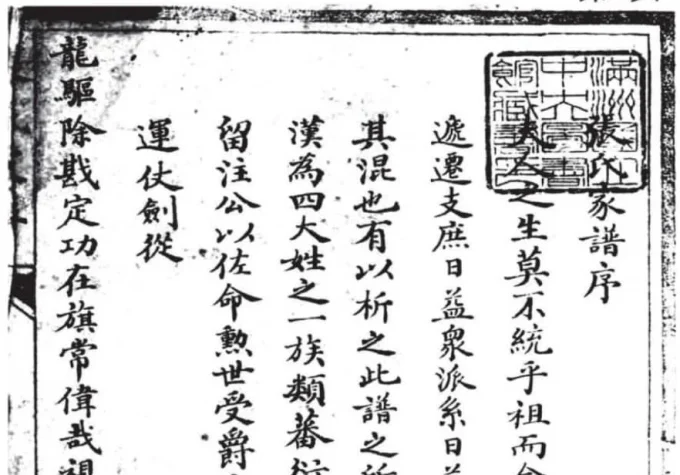 張氏家譜序
夫人之生莫不統乎祖而
遞遷支庶日益衆派系日
其混也有以析之此譜之所
漢為四大姓之一族類蕃衍
留注公以佐命勲世受爵
運仗劍從
龍驅除戡定功在旗常偉哉
滿洲
中央圖書
館藏書